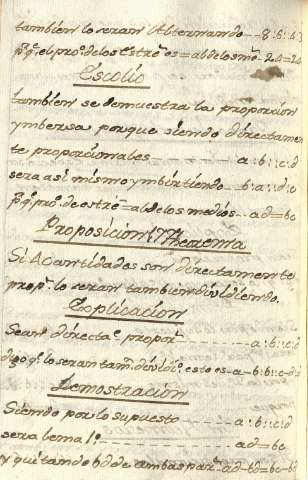 tambien lo seran Alternando -- 8:6::4:3
pq.e el pro.o de los Estre.s es = al de los m.o 24=24
Escolio
tambien se demuestra la proporcion
ymbersa porque siendo directamen
te proporcionales ---- a:b::c:d
sera asi mismo ymbirtiendo -- b:a::d:c
pq.e pro.o de estre.s = al de los medios -- ad=bc
Proposicion Theorema
Si 4 Cantidades son directamente
prop.s lo seran tambien dividiendo.
Explicacion
Sean directa.e propor.s ---- a:b::c:d
digo q.e lo seran tam.n dividi.o esto es = a-b:b::c-d:d
Demostracion
Siendo por lo supuesto ---- a:b::c:d
sera lema 1.o ---- ad=bc
y quitando bd de ambas par.s ad-bd=bc-bd